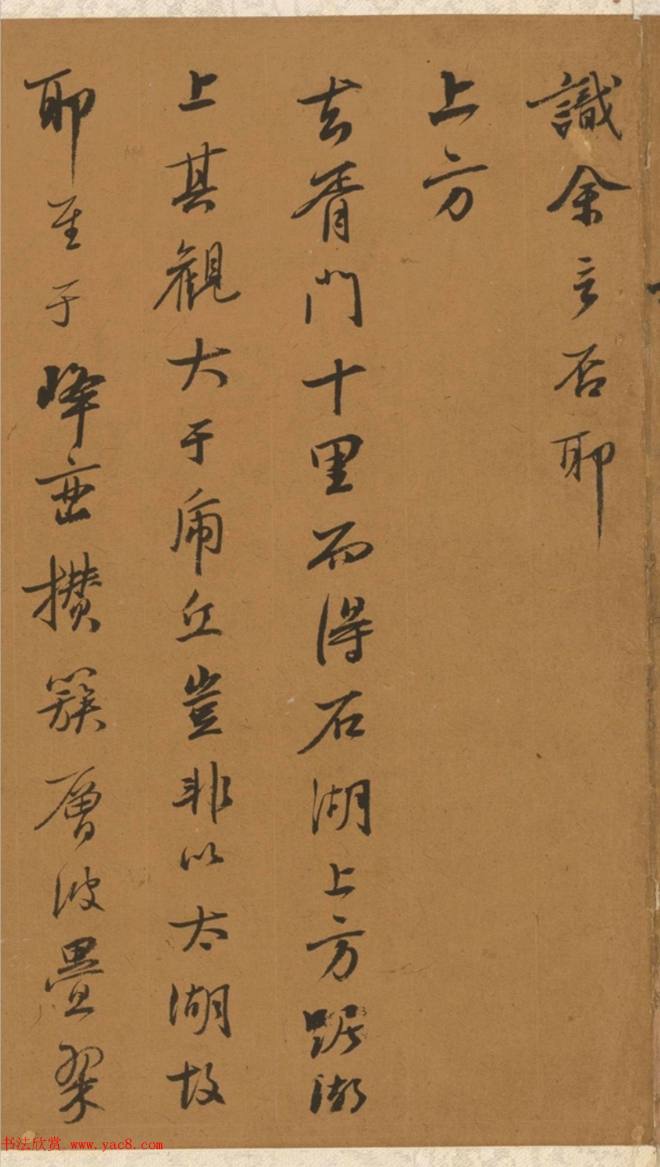 識余言否耶
上方
去胥門十里而得石湖上方踞湖
上其觀大于虎丘豈非以太湖故
耶至于峰巒攅簇層波疊翠
书法欣赏 www.yac8.com